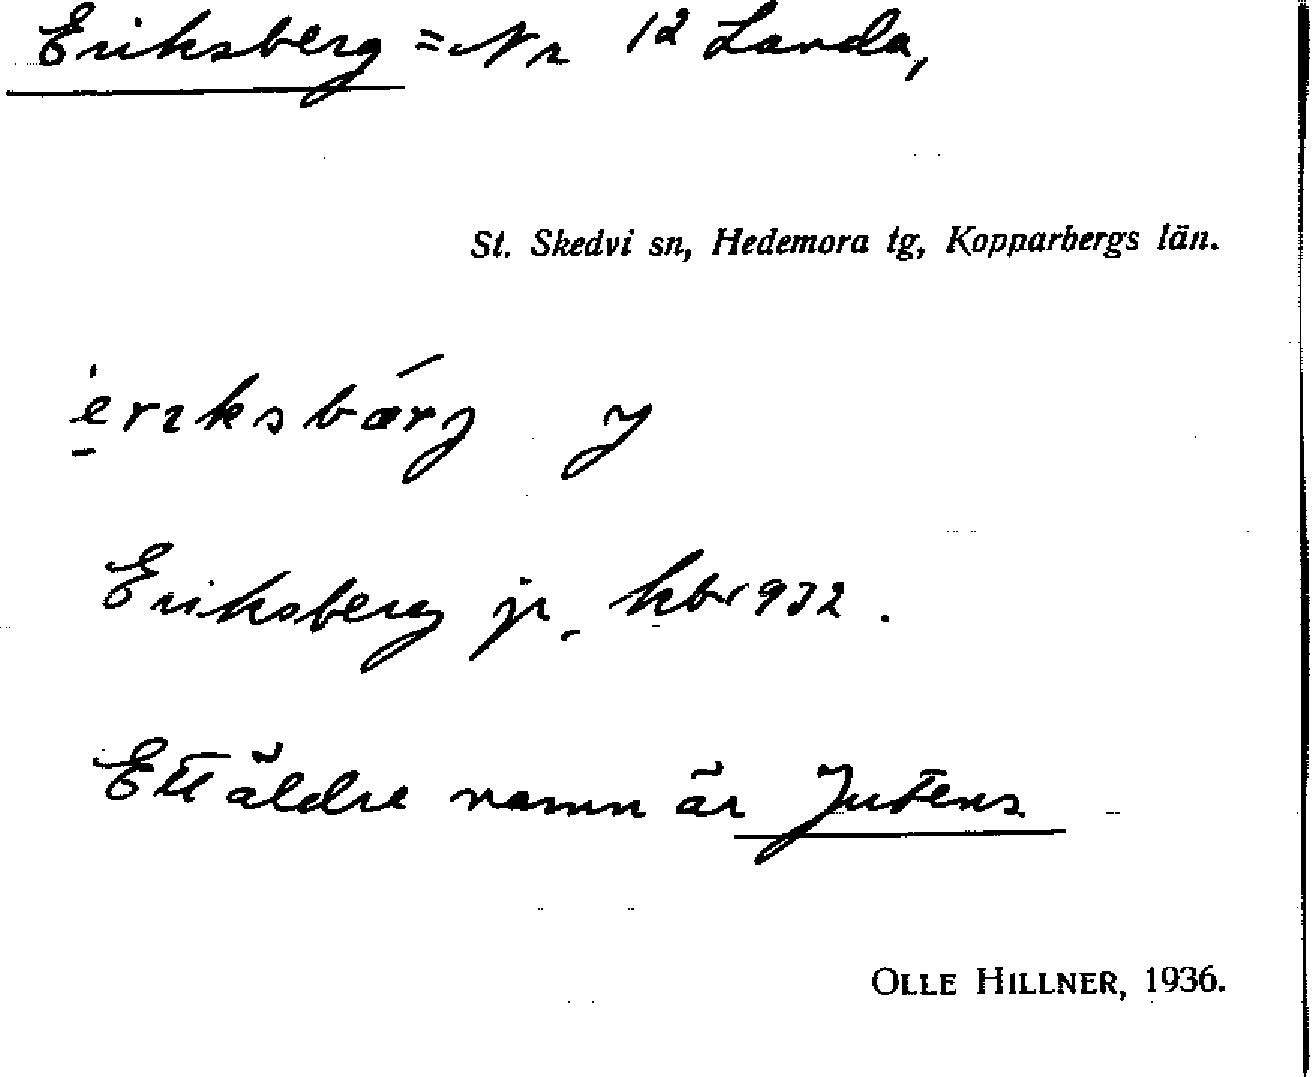 Eriksberg = Nr 12 Landa,
St. Skedvi sn, Hedemora tg, Kopparbergs län.
eriksbärj J
Eriksberg jr. kbr 1932.
Ett äldre namn är Jutens
OLLE HILLNER, 1936.